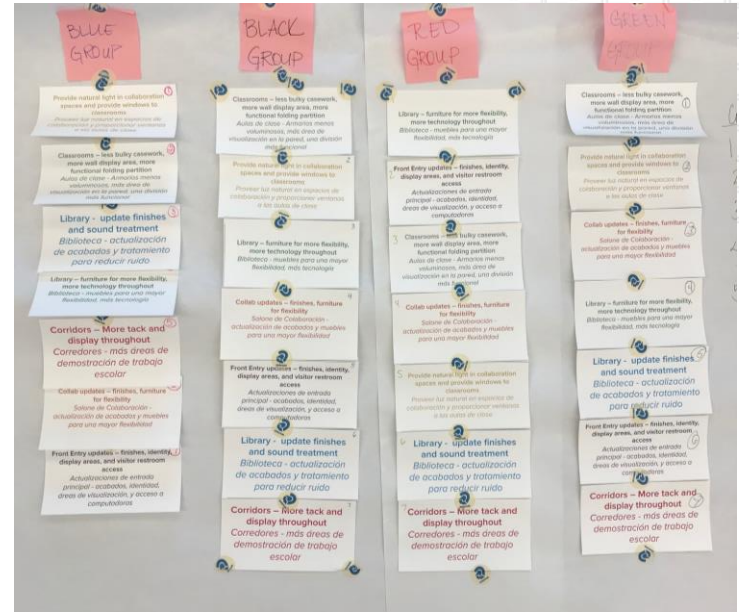 BLUE
GROUP
①
Provide natural light in collaboration
spaces and provide windows to
classrooms
Proveer luz natural en espacios de
colaboración y proporcionar ventanas
a las aulas de clase
Classrooms – less bulky casework,
more wall display area, more
functional folding partition
Aulas de clase - Armarios menos
voluminosos, más área de
visualización en la pared, una división
más funcional
③
Library - update finishes
and sound treatment
Biblioteca - actualización
de acabados y tratamiento
para reducir ruido
Library – furniture for more flexibility,
more technology throughout
Biblioteca - muebles para una mayor
flexibilidad, más tecnología
⑤
Corridors – More tack and
display throughout
Corredores - más áreas de
demostración de trabajo
escolar
Collab updates – finishes, furniture
for flexibility
Salone de Colaboración -
actualización de acabados y muebles
para una mayor flexibilidad
Front Entry updates – finishes, identity,
display areas, and visitor restroom
access
Actualizaciones de entrada
principal - acabados, identidad,
áreas de visualización, y acceso a
computadoras
BLACK
GROUP
Classrooms – less bulky casework,
more wall display area, more
functional folding partition
Aulas de clase - Armarios menos
voluminosos, más área de
visualización en la pared, una división
más funcional
2
Provide natural light in collaboration
spaces and provide windows to
classrooms
Proveer luz natural en espacios de
colaboración y proporcionar ventanas
a las aulas de clase
3
Library – furniture for more flexibility,
more technology throughout
Biblioteca - muebles para una mayor
flexibilidad, más tecnología
4
Collab updates – finishes, furniture
for flexibility
Salone de Colaboración -
actualización de acabados y muebles
para una mayor flexibilidad
Front Entry updates – finishes, identity,
display areas, and visitor restroom
access
Actualizaciones de entrada
principal - acabados, identidad,
áreas de visualización, y acceso a
computadoras
6
Library - update finishes
and sound treatment
Biblioteca - actualización
de acabados y tratamiento
para reducir ruido
7
Corridors – More tack and
display throughout
Corredores - más áreas de
demostración de trabajo
escolar
RED
GROUP
Library – furniture for more flexibility,
more technology throughout
Biblioteca - muebles para una mayor
flexibilidad, más tecnología
2
Front Entry updates – finishes, identity,
display areas, and visitor restroom
access
Actualizaciones de entrada
principal - acabados, identidad,
áreas de visualización, y acceso a
computadoras
3
Classrooms – less bulky casework,
more wall display area, more
functional folding partition
Aulas de clase - Armarios menos
voluminosos, más área de
visualización en la pared, una división
más funcional
4
Collab updates – finishes, furniture
for flexibility
Salone de Colaboración -
actualización de acabados y muebles
para una mayor flexibilidad
5
Provide natural light in collaboration
spaces and provide windows to
classrooms
Proveer luz natural en espacios de
colaboración y proporcionar ventanas
a las aulas de clase
6
Library - update finishes
and sound treatment
Biblioteca - actualización
de acabados y tratamiento
para reducir ruido
Corridors – More tack and
display throughout
Corredores - más áreas de
demostración de trabajo
escolar
GREEN
GROUP
①
Classrooms – less bulky casework,
more wall display area, more
functional folding partition
Aulas de clase - Armarios menos
voluminosos, más área de
visualización en la pared, una división
más funcional
②
Provide natural light in collaboration
spaces and provide windows to
classrooms
Proveer luz natural en espacios de
colaboración y proporcionar ventanas
a las aulas de clase
③
Collab updates – finishes, furniture
for flexibility
Salone de Colaboración -
actualización de acabados y muebles
para una mayor flexibilidad
④
Library – furniture for more flexibility,
more technology throughout
Biblioteca - muebles para una mayor
flexibilidad, más tecnología
⑤
Library - update finishes
and sound treatment
Biblioteca - actualización
de acabados y tratamiento
para reducir ruido
⑥
Front Entry updates – finishes, identity,
display areas, and visitor restroom
access
Actualizaciones de entrada
principal - acabados, identidad,
áreas de visualización, y acceso a
computadoras
⑦
Corridors – More tack and
display throughout
Corredores - más áreas de
demostración de trabajo
escolar